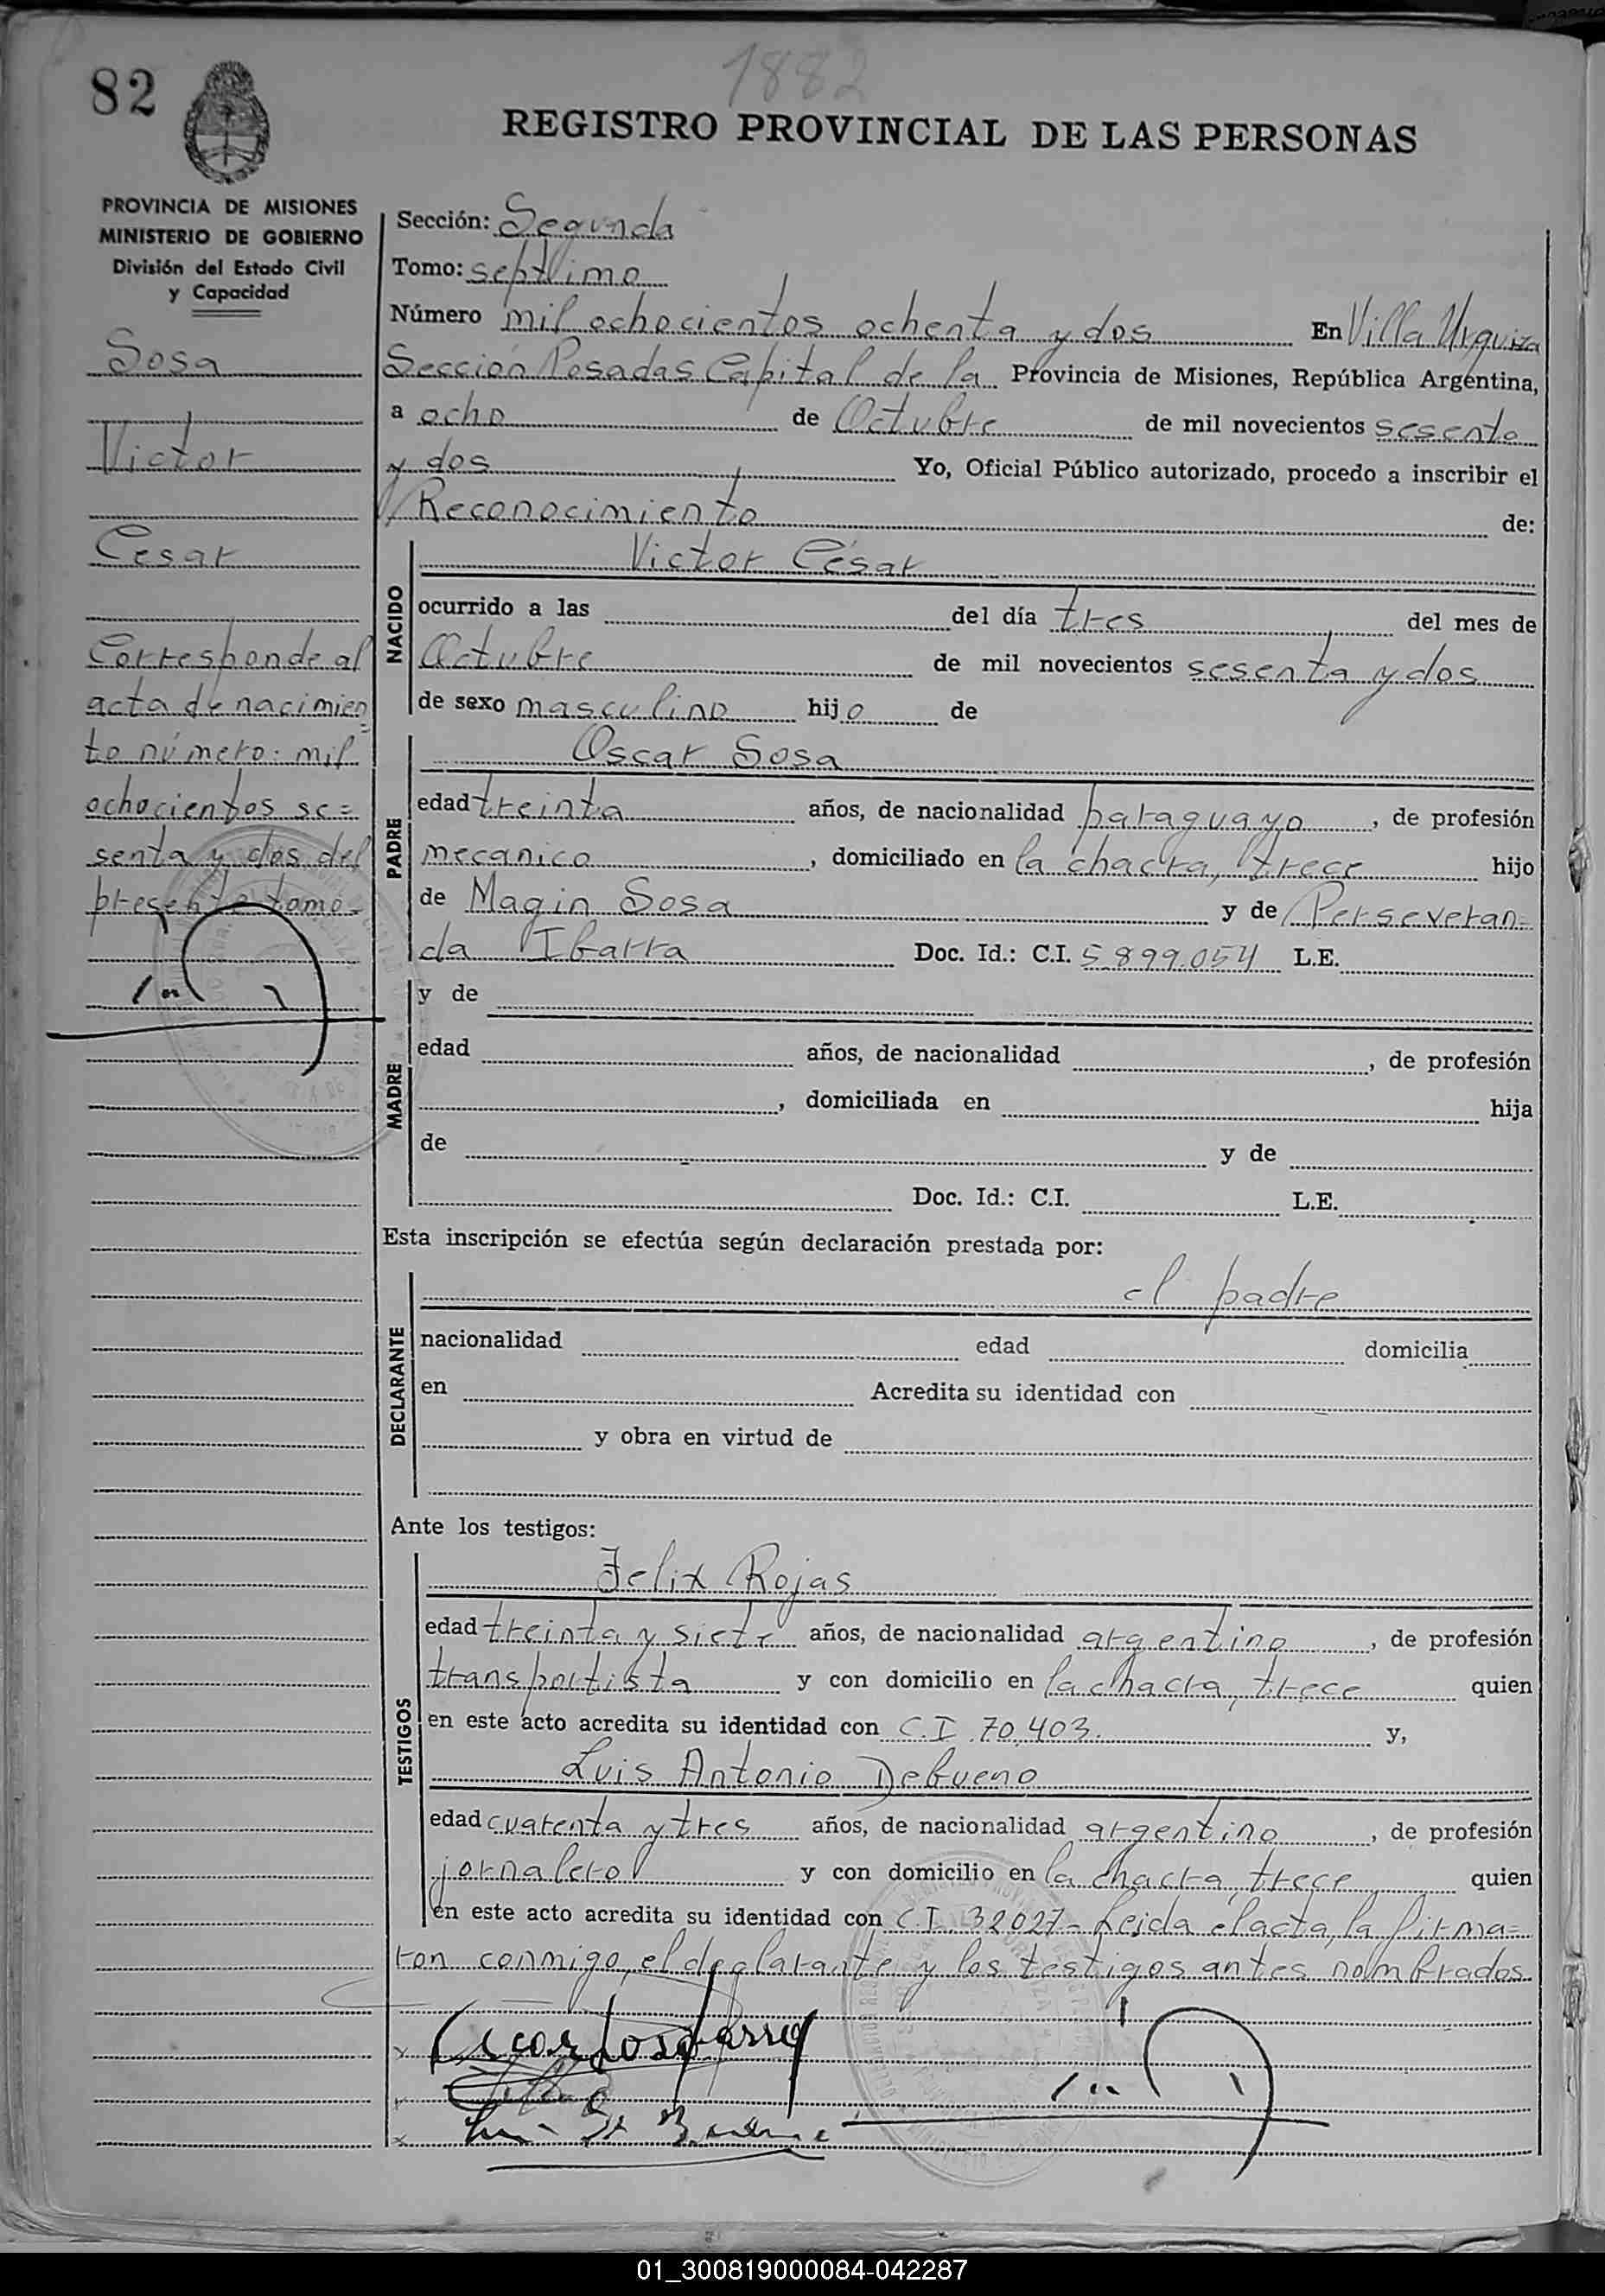 1882
82
REGISTRO PROVINCIAL DE LAS PERSONAS
PROVINCIA DE MISIONES
MINISTERIO DE GOBIERNO
División del Estado Civil
y Capacidad
Sosa
Victor
Cesar
Corresponde al
acta de nacimien
to número: mil
ochocientos se=
senta y dos del
presente tomo-
Sección: Segunda
Tomo: septimo
Número mil ochocientos ochenta y dos En Villa Urquiza
Sección Posadas Capital de la Provincia de Misiones, República Argentina,
a ocho de Octubre de mil novecientos sesenta
y dos Yo, Oficial Público autorizado, procedo a inscribir el
Reconocimiento de:
NACIDO
Victor César
ocurrido a las del día tres del mes de
Octubre de mil novecientos sesenta y dos
de sexo masculino hijo de
PADRE
Oscar Sosa
edad treinta años, de nacionalidad paraguayo, de profesión
mecanico, domiciliado en la chacra, trece hijo
de Magin Sosa y de Perseveran=
da Ibarra Doc. Id.: C.I. 5.899.054 L.E.
MADRE
y de
edad años, de nacionalidad , de profesión
, domiciliada en hija
de y de
Doc. Id.: C.I. L.E.
Esta inscripción se efectúa según declaración prestada por:
DECLARANTE
el padre
nacionalidad edad domicilia
en Acredita su identidad con
y obra en virtud de
Ante los testigos:
TESTIGOS
Felix Rojas
edad treinta y siete años, de nacionalidad argentino, de profesión
transportista y con domicilio en la chacra, trece quien
en este acto acredita su identidad con C.I 70.403. y,
Luis Antonio Debueno
edad cuarenta y tres años, de nacionalidad argentino, de profesión
jornalero y con domicilio en la chacra, trece quien
en este acto acredita su identidad con C.I. 32027- Leida el acta, la firma=
ron conmigo, el declarante y los testigos antes nombrados
01_300819000084-042287